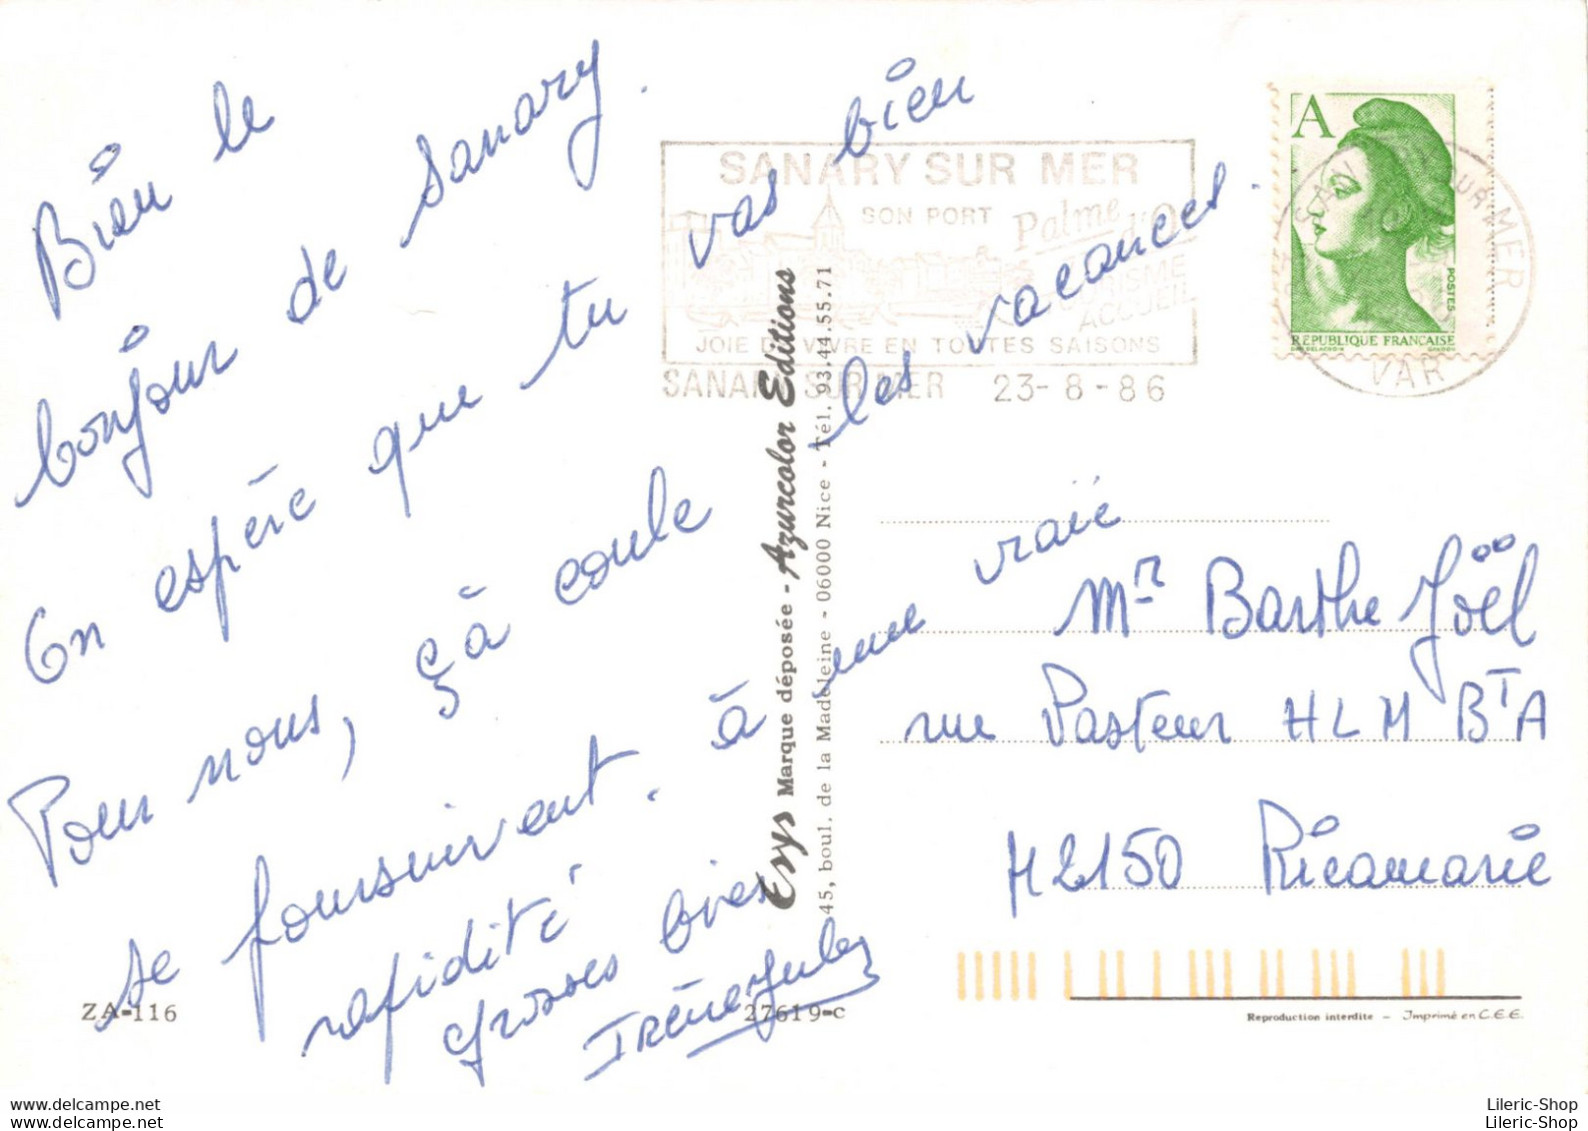 Bien le
bonjour de Sanary.
On espère que tu vas bien
Pour nous, çà coule les vacances.
se poursuivent. à une vraie
rapidité
Grosses bises
Irène Jules
SANARY SUR MER
SON PORT
Palme d'Or
TOURISME
ACCUEIL
JOIE DE VIVRE EN TOUTES SAISONS
SANARY SUR MER 23-8-86
A
POSTES
RÉPUBLIQUE FRANÇAISE
SANARY SUR MER
VAR
Esys Marque déposée - Azurcolor Editions
45, boul. de la Madeleine - 06000 Nice - Tél. 93.44.55.71
Mr Barthe Joël
rue Pasteur HLM BT A
42150 Ricamarie
ZA-116
27619-C
Reproduction interdite - Imprimé en C.E.E.
Lileric-Shop
Lileric-Shop
Lileric-Shop
Lileric-Shop